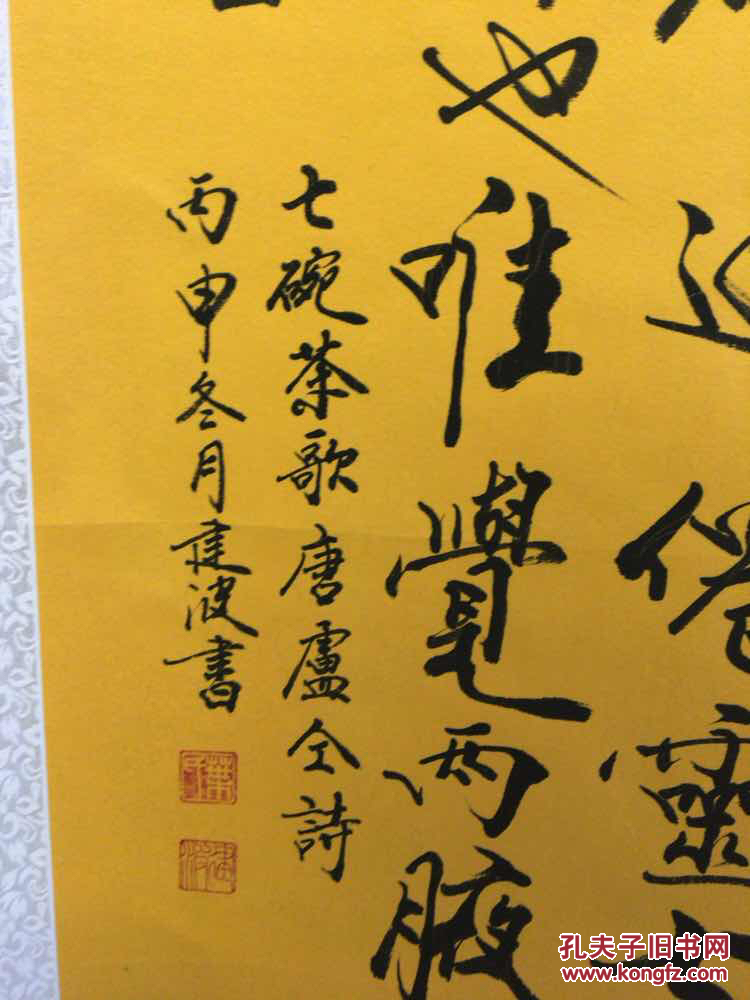 僊靈
也唯覺兩腋
七碗茶歌唐盧仝詩
丙申冬月建波書
建波
孔夫子旧书网
www.kongfz.com